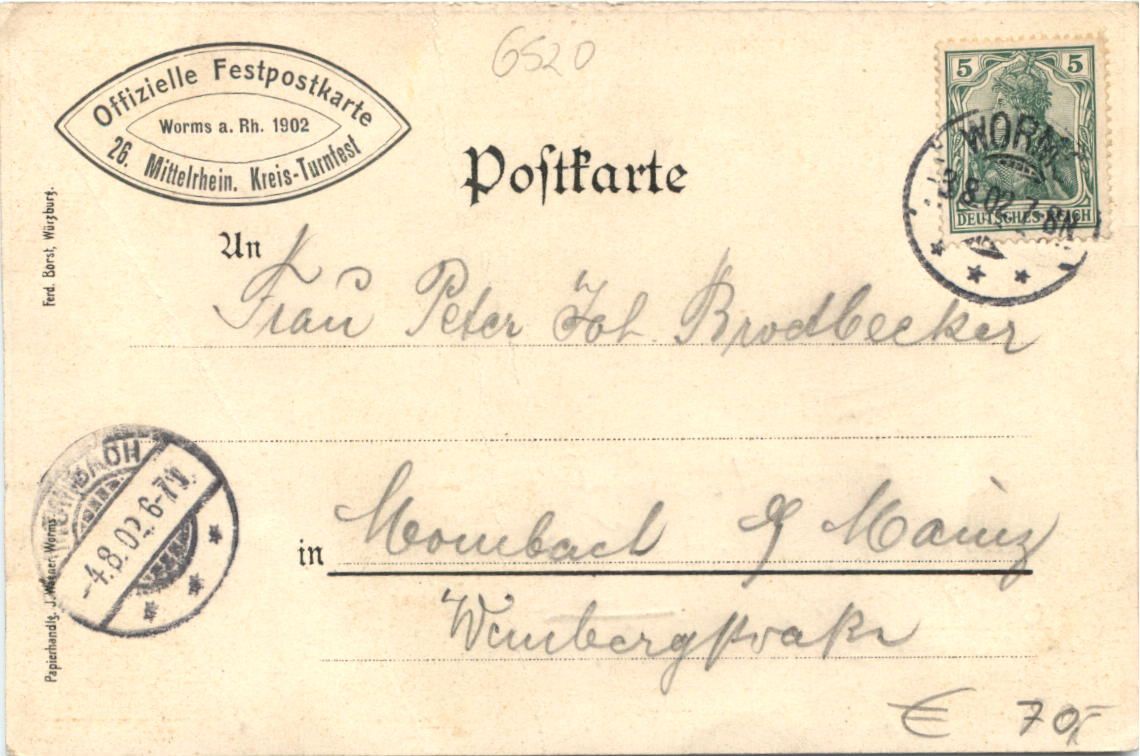 6520
Offizielle Festpostkarte
Worms a. Rh. 1902
26. Mittelrhein. Kreis-Turnfest
5 5
DEUTSCHES REICH
WORMS
3.8.02. 7-8N
Postkarte
Ferd. Borst, Würzburg.
An
Frau Peter Joh Brodbecker
MOMBACH
-4.8.02. 6-7V.
in Mombach b/ Mainz
Weinbergstraße
Papierhandlg. J. Wagner, Worms
€ 70,-